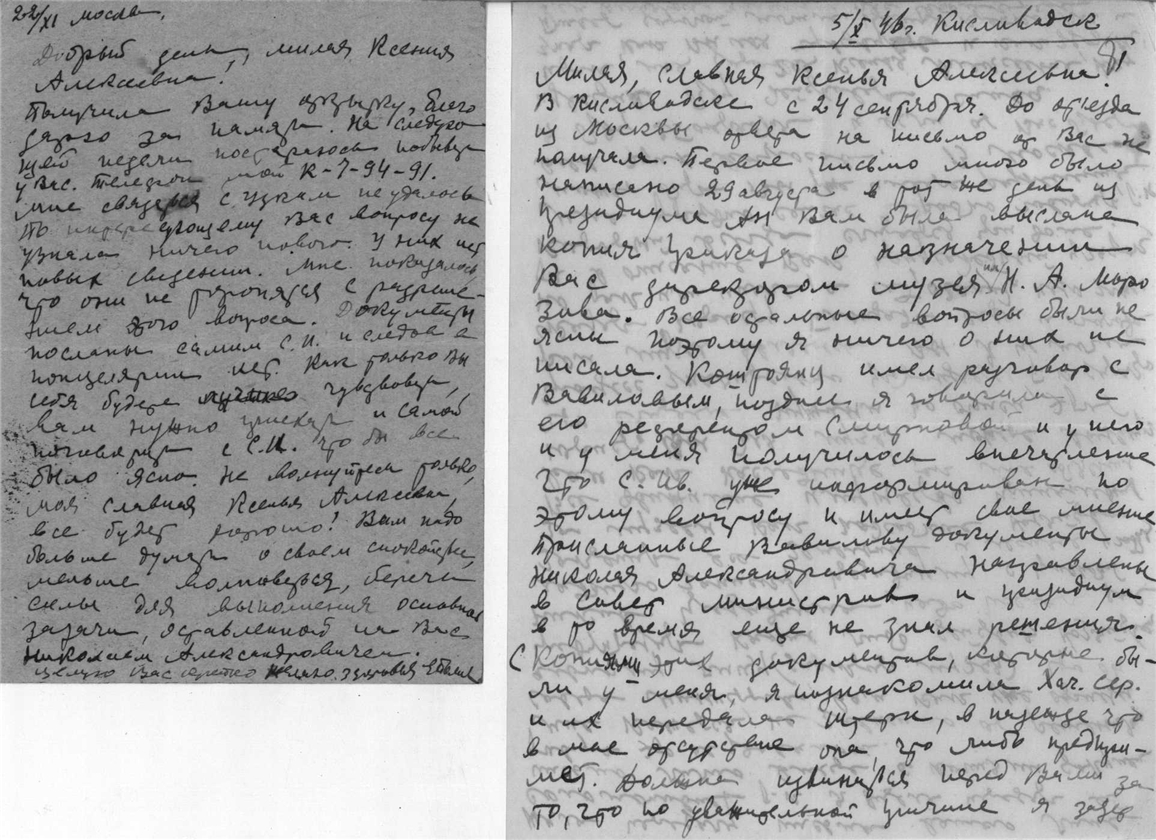 22/XI Москва,
Добрый день, милая Ксения
Алексеевна!
Получила Вашу открытку, благо
дарю за память. На следую
щей неделе постараюсь побывать
у Вас. Телефон мой К-7-94-91.
Мне связаться с не удалось
По интересующему Вас вопросу не
узнала ничего нового. У них нет
новых сведений. Мне показалось
что они не торопятся с разреше-
нием этого вопроса. Документы
посланы самим С.И. и следов в
канцелярии нет. Как только Вы
себя будете лучше чувствовать,
Вам нужно приехать и самой
поговорить с С.И. что бы все
было ясно. Не волнуйтесь только,
моя славная Ксенья Алексеевна,
все будет хорошо! Вам надо
больше думать о своем спокойствии,
меньше волноваться, беречь
силы для выполнения основной
задачи, оставленной на Вас
Николаем Александровичем.
Целую Вас крепко желаю здоровья
5/X 46г. Кисловодск
Милая, славная Ксенья Алексеевна!
В Кисловодске с 24 сентября. До отъезда
из Москвы ответа на письмо от Вас не
получала. Первое письмо мною было
написано 29 августа в тот же день из
президиума АН Вам была выслана
копия приказа о назначении
Вас директором музея им Н. А. Моро
зова. Все остальные вопросы были не
ясны поэтому я ничего о них не
писала. имел разговор с
Вавиловым, позднее я говорила с
его референтом Смирновой и у него
и у меня получилось впечатление
что С. Ив. уже информирован по
этому вопросу и имеет свое мнение
Присланные Вавилову документы
Николая Александровича направлены
в совет министров и президиум
в то время еще не знал решения.
С копиями этих документов, которые бы-
ли у меня, я познакомила Хач. Сер.
и их передала Штерн, в надежде что
в мое отсутствие она, что либо предпри-
мет. Должна извиниться перед Вами за
то, что по уважительной причине я задер